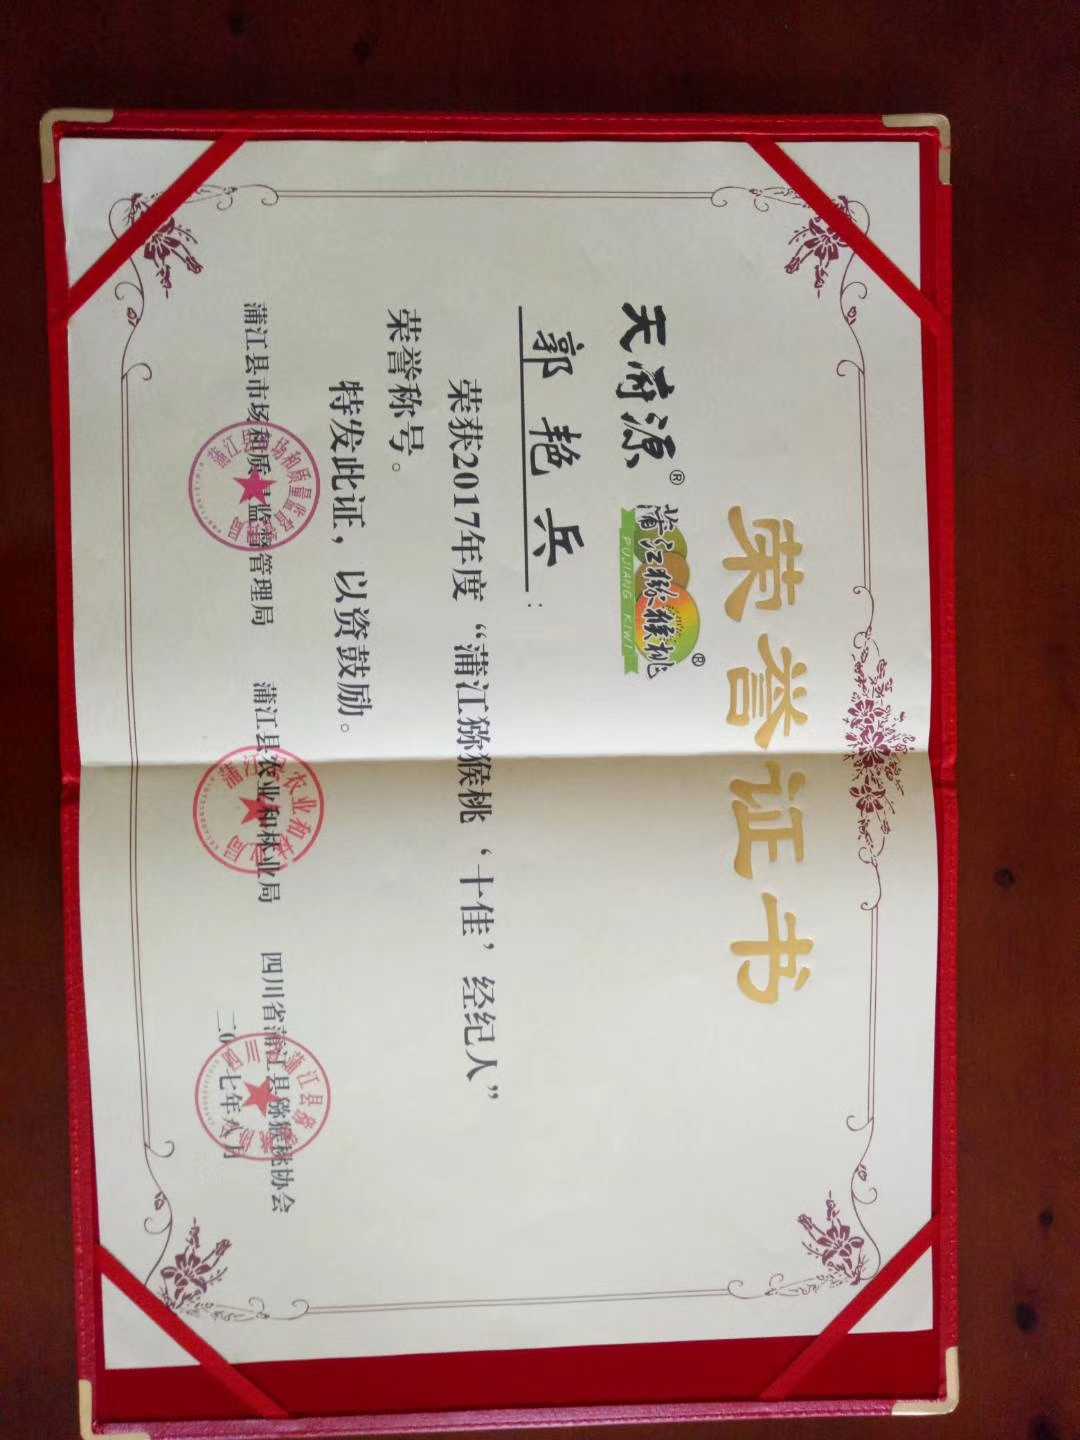 荣誉证书
天府源® 蒲江猕猴桃®
PUJIANG KIWI
郭艳兵：
荣获2017年度“蒲江猕猴桃‘十佳’经纪人”
荣誉称号。
特发此证，以资鼓励。
蒲江县市场和质量监督管理局 蒲江县农业和林业局 四川省蒲江县猕猴桃协会
二0一七年八月